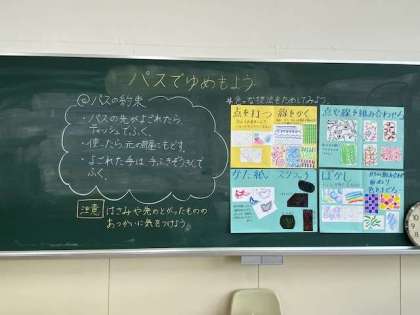 パスでゆめもよう
◎パスの約束
・パスの先がよごれたら、
ティッシュでふく。
・使ったら元の部屋にもどす。
・よごれた手は手ふきぞうきんで
ふく。
注意 はさみや先のとがったものの
あつかいに気をつけよう。
な技法をためしてみよう
点を打つ 線をかく
点や線を組み合わせる
かた紙 ステンシル
ぼかし
10
9
8